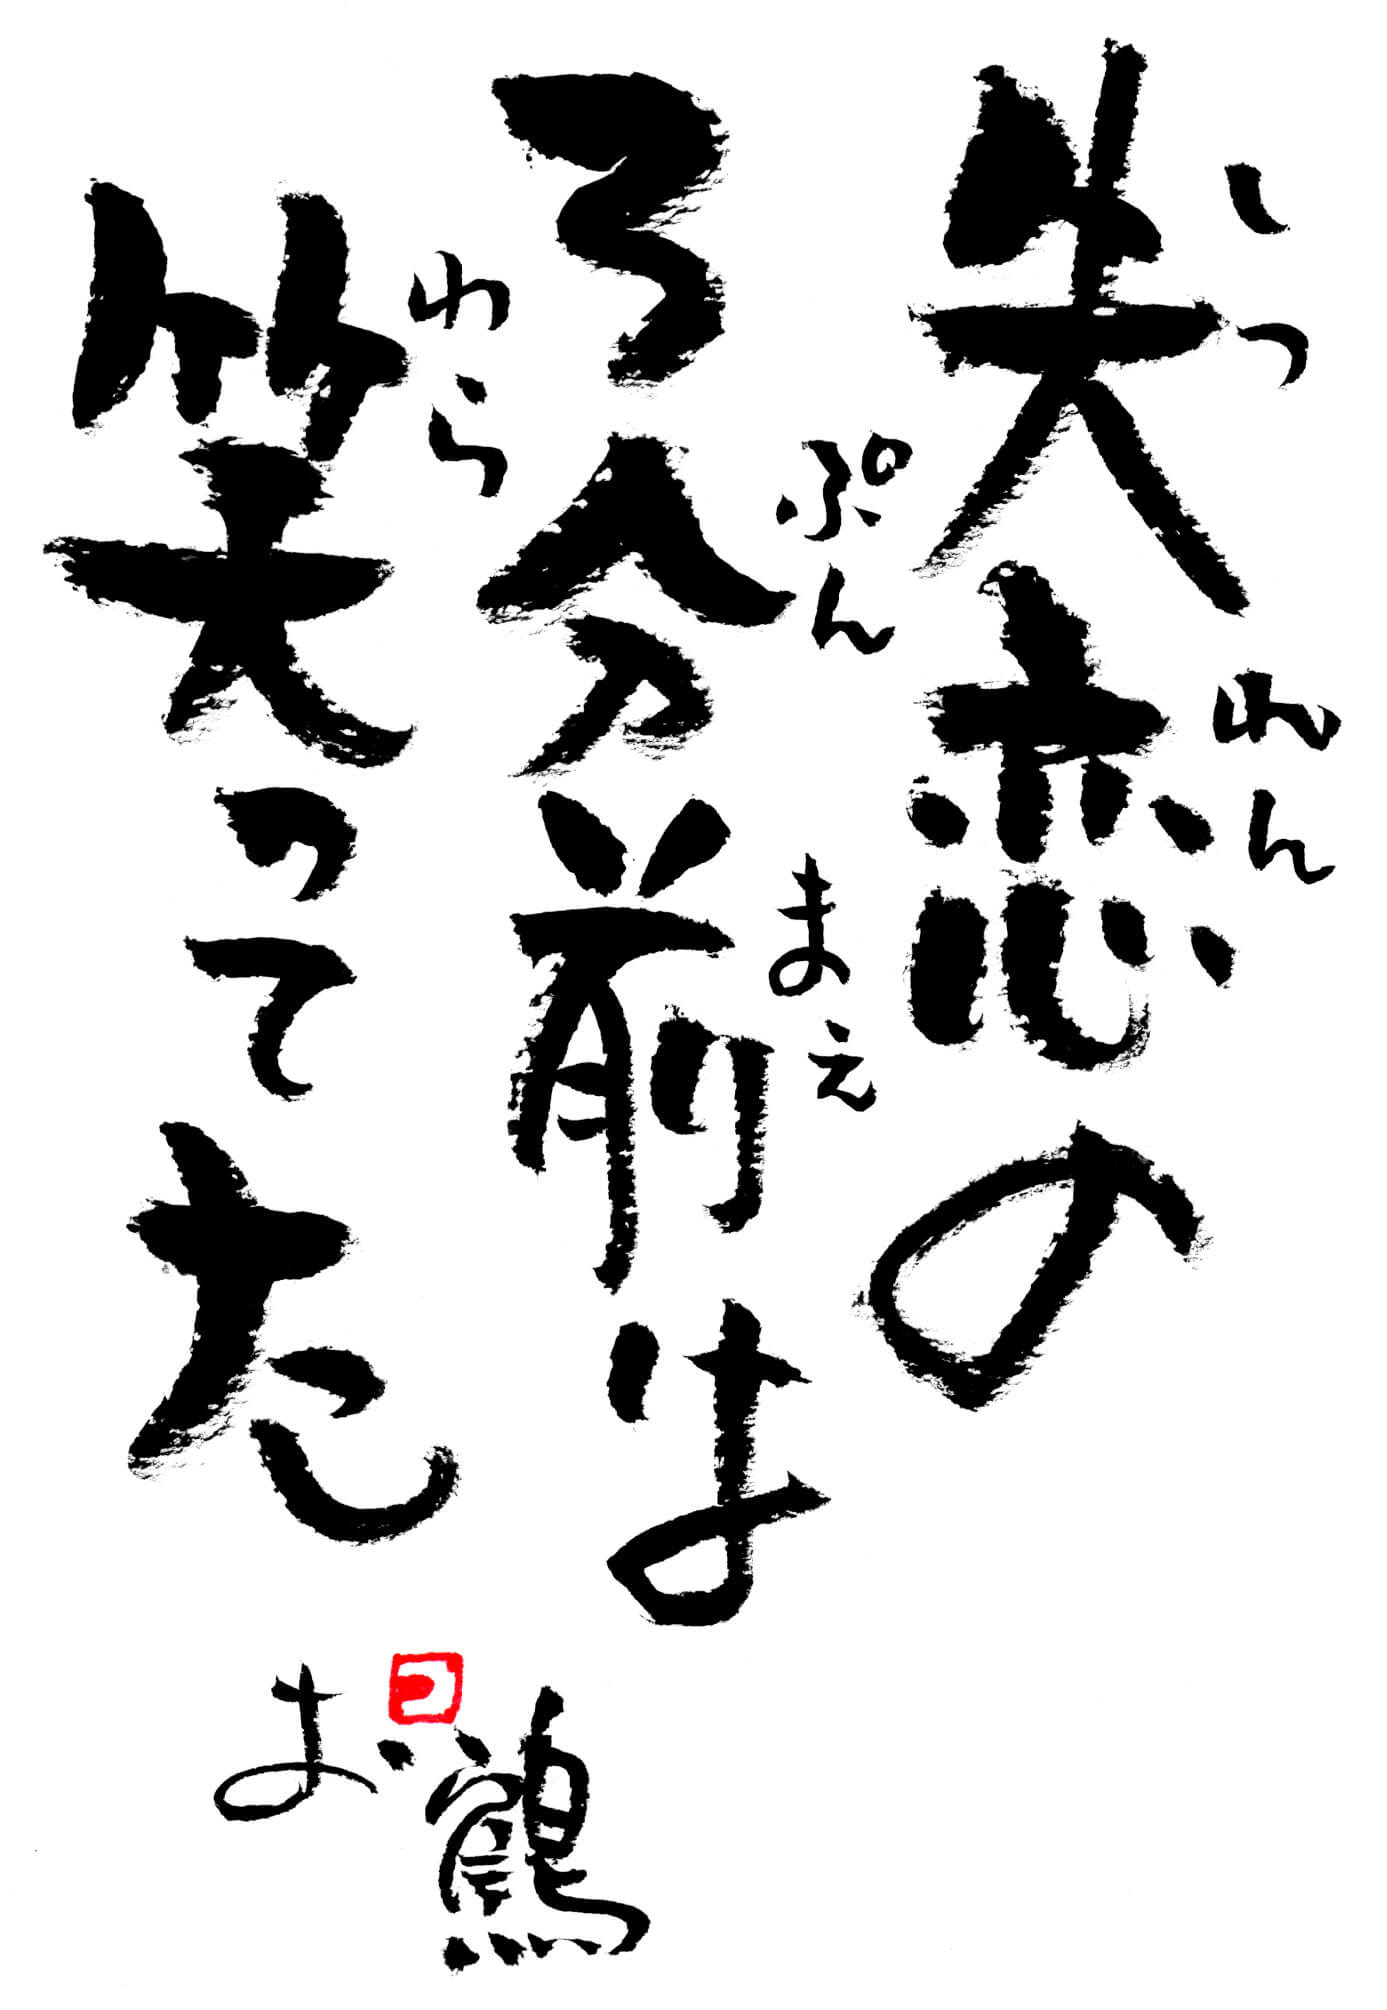 しつ れん
失恋の
ぷん まえ
3分前は
わら
笑ってた
お鶴
つ